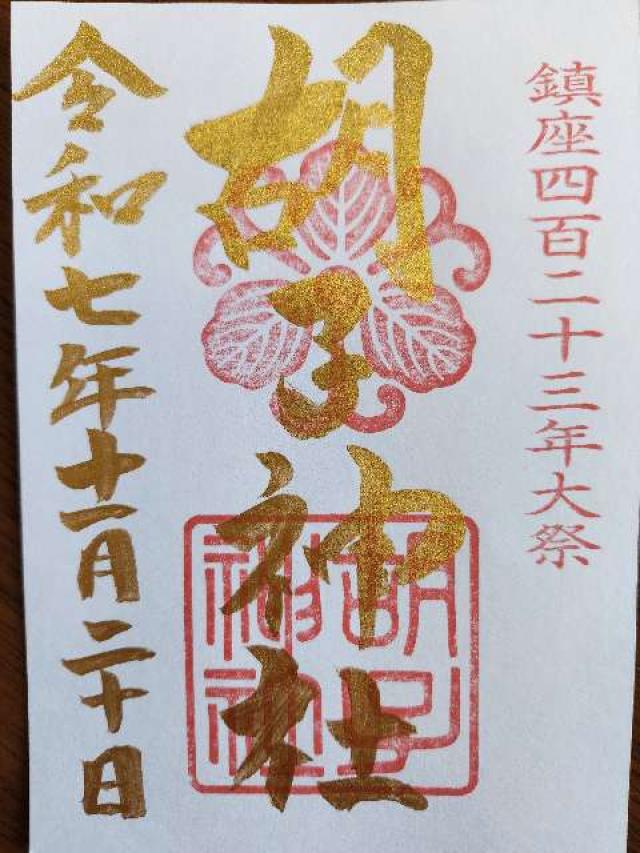 鎮座四百二十三年大祭
胡子神社
胡子
神社
令和七年十一月二十日